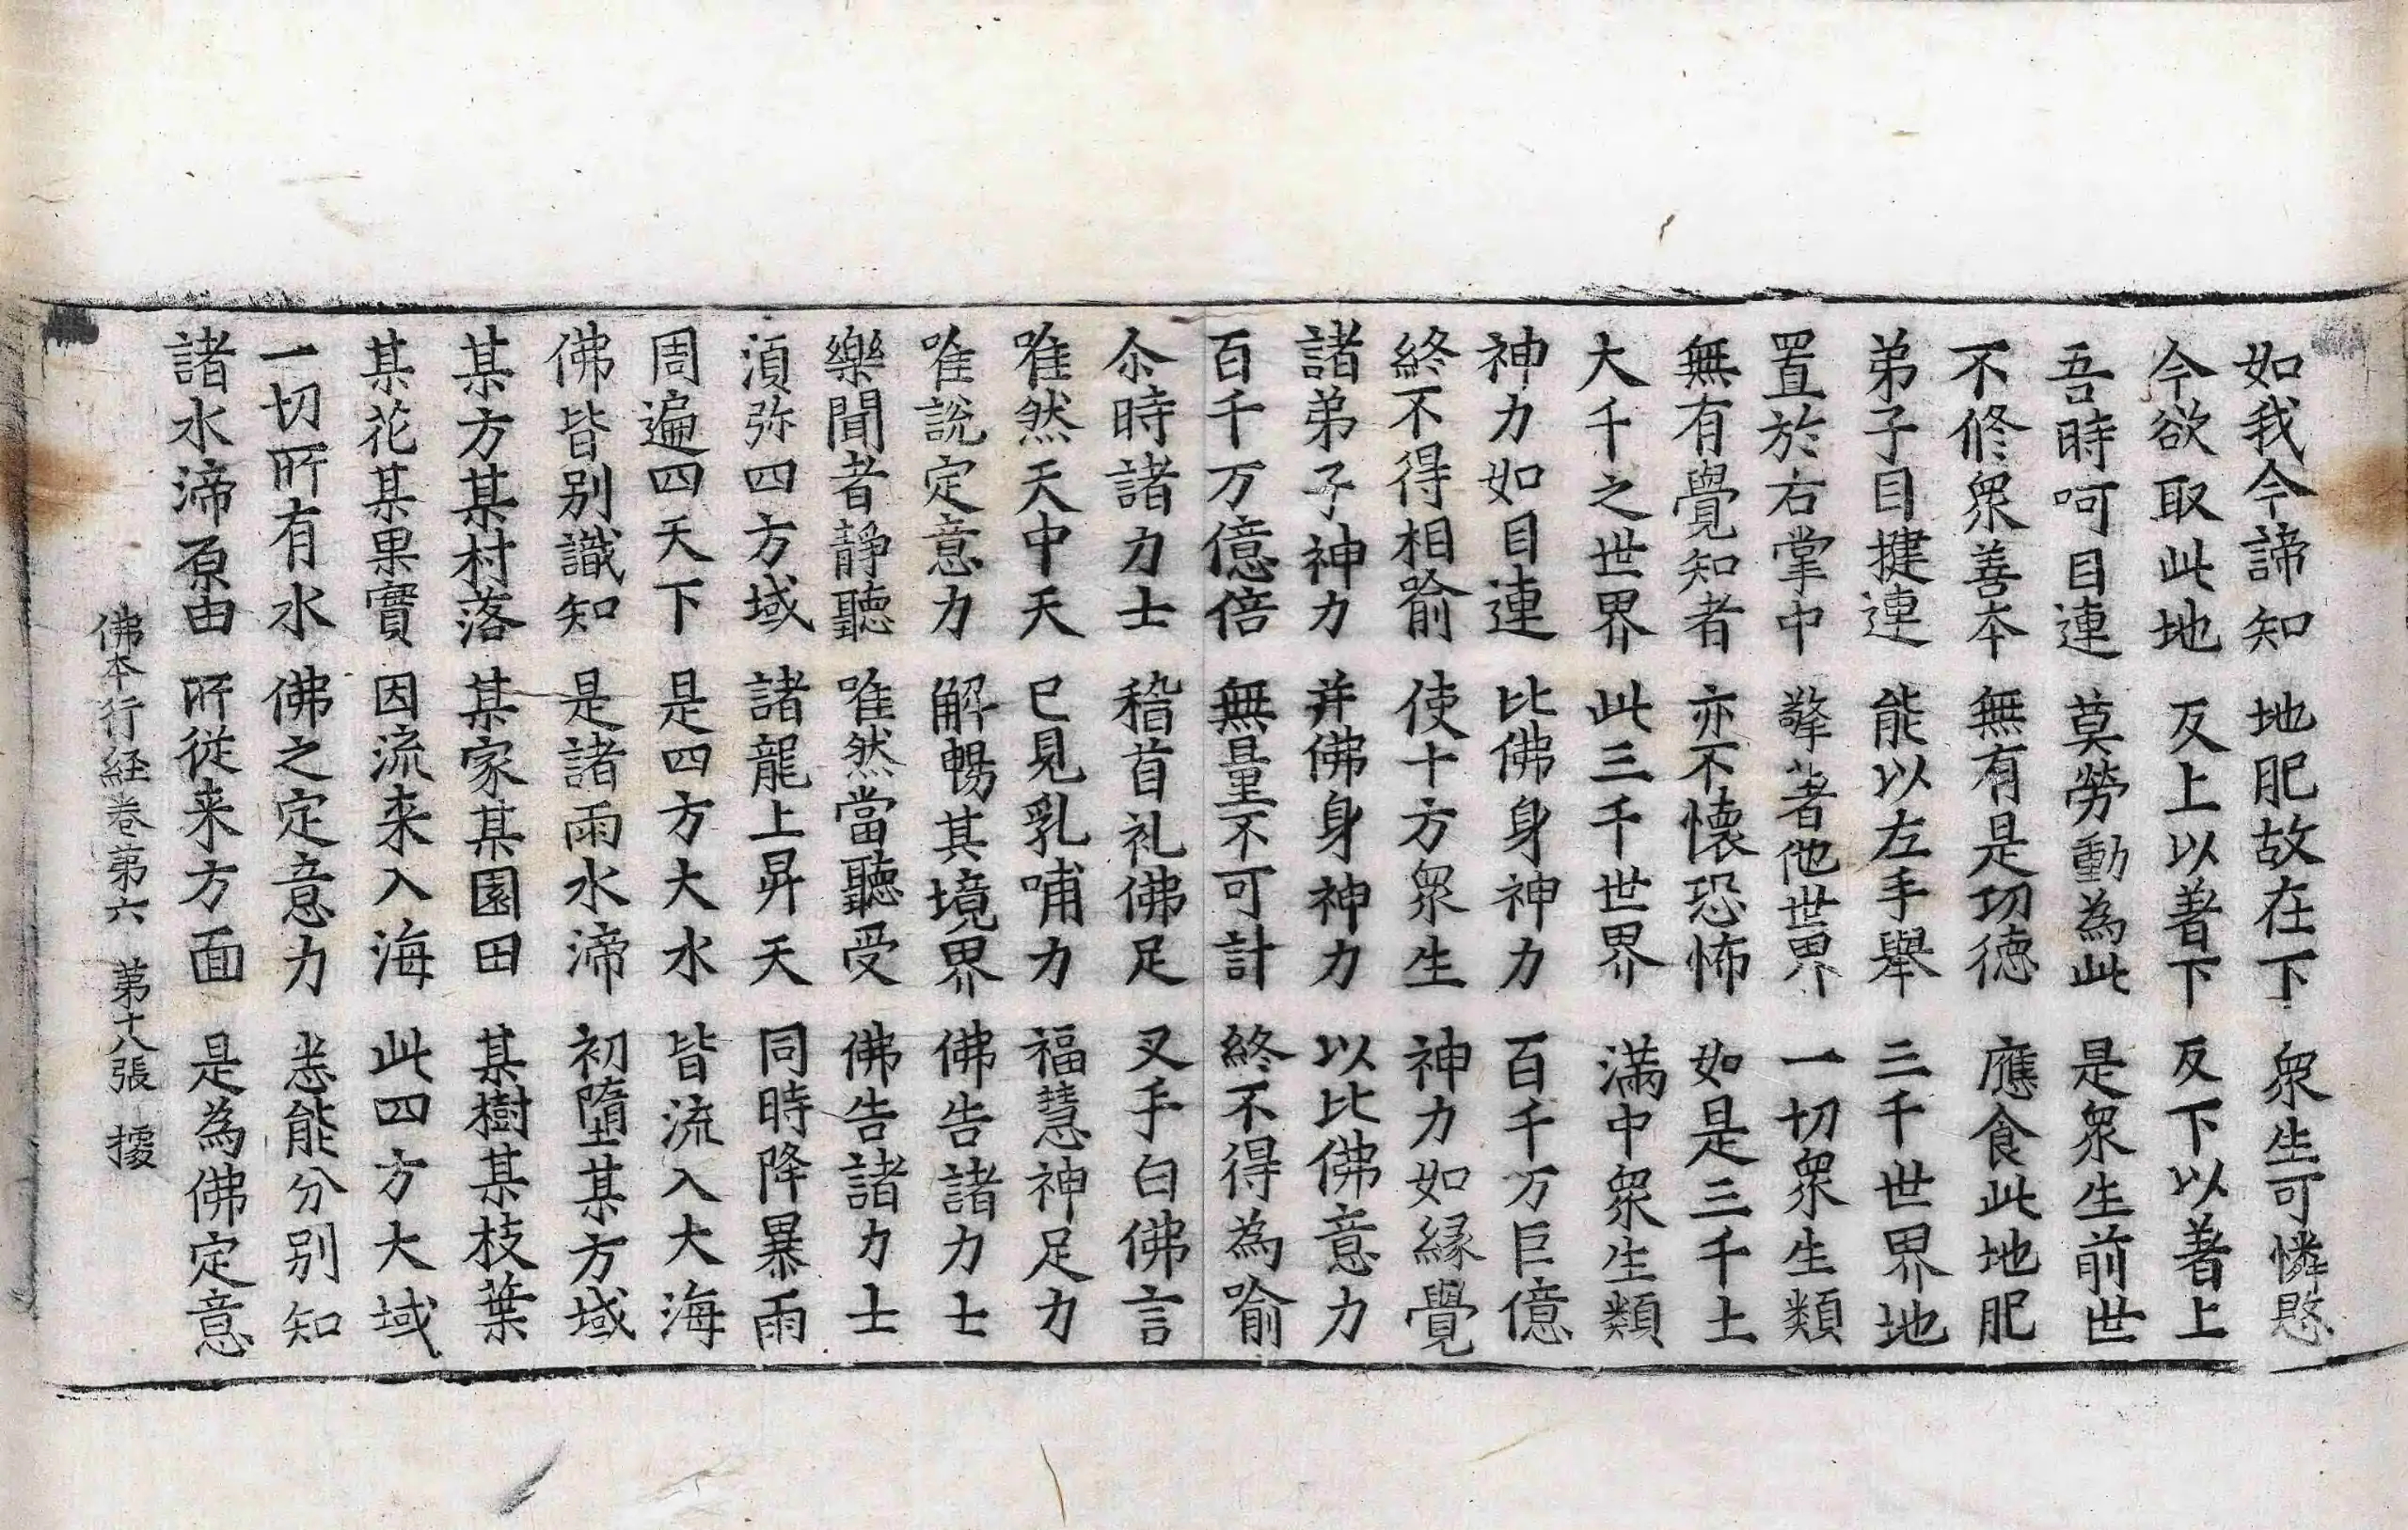 如我今諦知 地肥故在下 衆生可憐愍
今欲取此地 反上以著下 反下以著上
吾時呵目連 莫勞動為此 是衆生前世
不修衆善本 無有是功德 應食此地肥
弟子目揵連 能以左手舉 三千世界地
置於右掌中 擎著他世界 一切衆生類
無有覺知者 亦不懷恐怖 如是三千土
大千之世界 此三千世界 滿中衆生類
神力如目連 比佛身神力 百千万巨億
終不得相喻 使十方衆生 神力如緣覺
諸弟子神力 并佛身神力 以比佛意力
百千万億倍 無量不可計 終不得為喻
尒時諸力士 稽首礼佛足 叉手白佛言
唯然天中天 已見乳哺力 福慧神足力
唯說定意力 解暢其境界 佛告諸力士
樂聞者靜聽 唯然當聽受 佛告諸力士
湏弥四方域 諸龍上昇天 同時降暴雨
周遍四天下 是四方大水 皆流入大海
佛皆別識知 是諸雨水渧 初墮某方域
某方某村落 某家某園田 某樹某枝葉
某花某果實 因流来入海 此四方大域
一切所有水 佛之定意力 悉能分別知
諸水渧原由 所従来方面 是為佛定意
佛本行経卷第六 第十八張 據